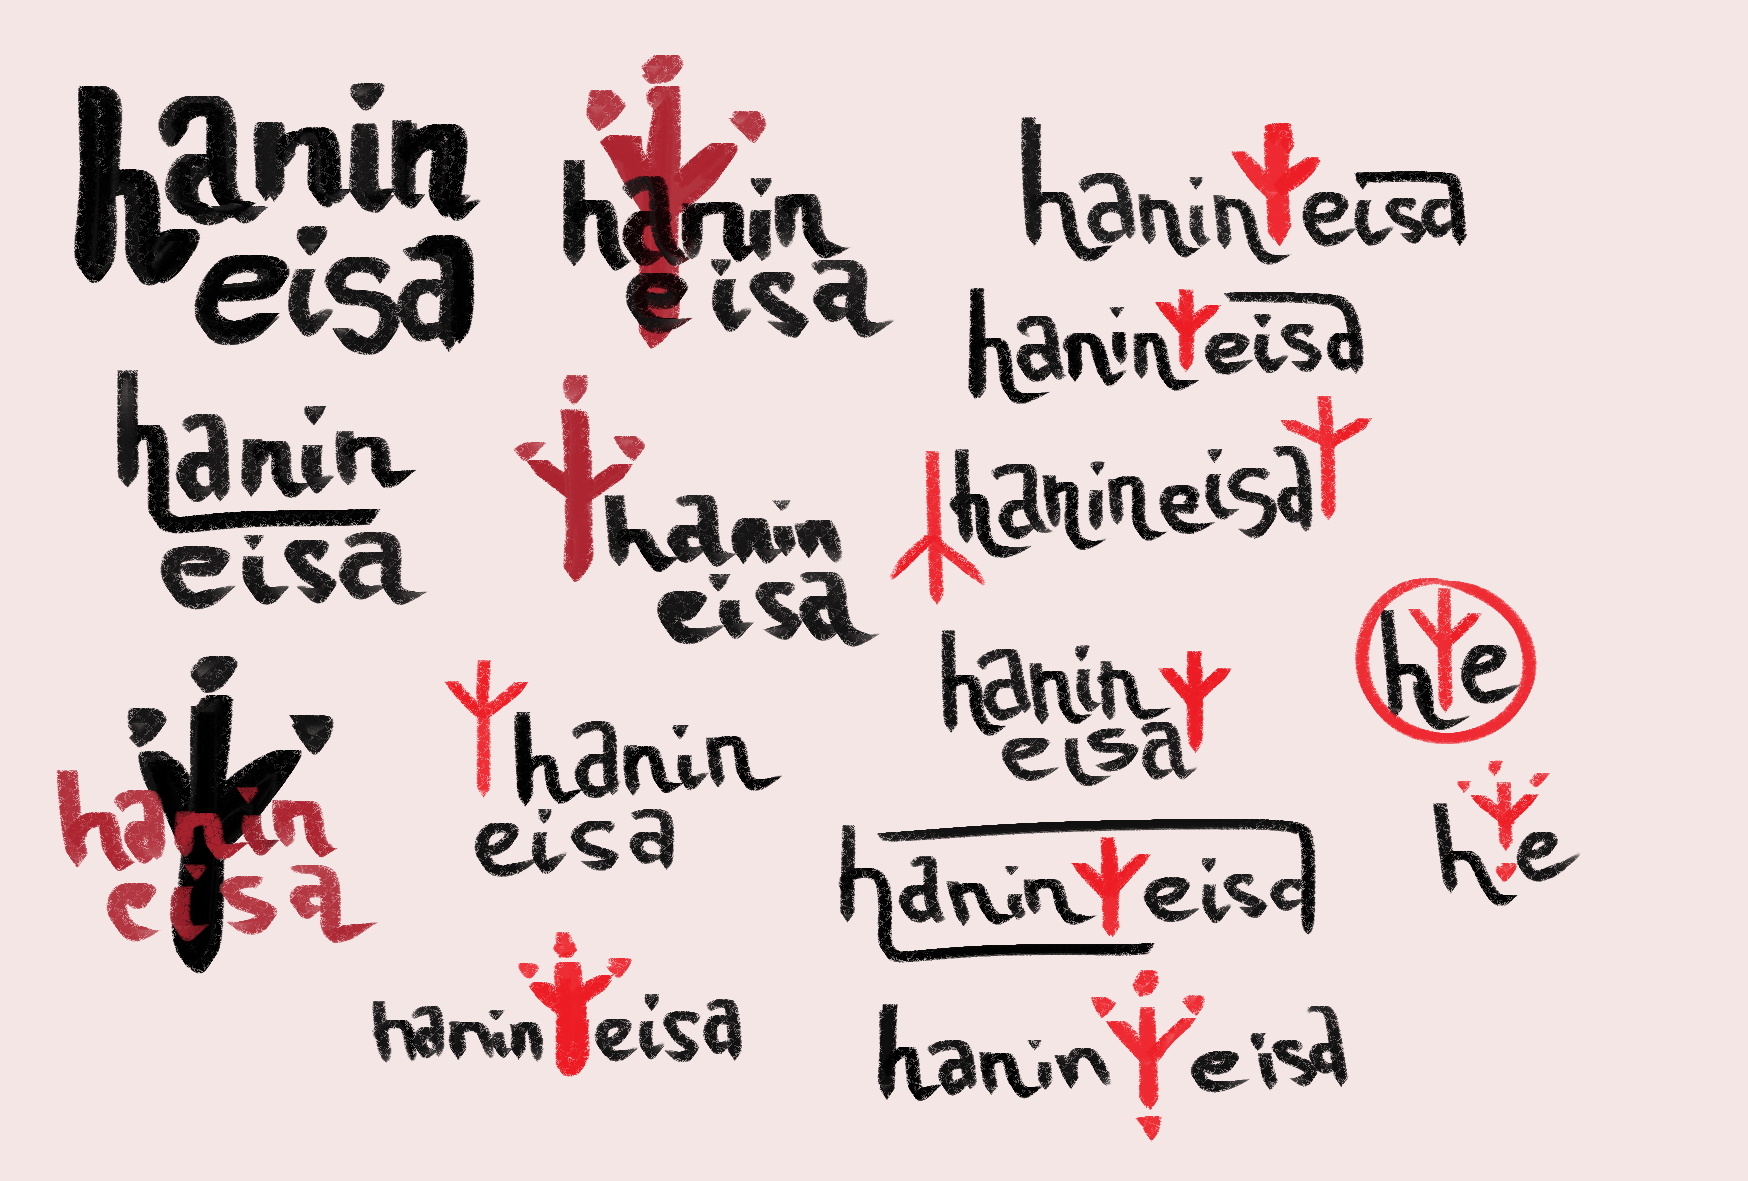 hanin
eisa
hanin
eisa
hanin eisa
hanin eisa
hanin
eisa
hanin
eisa
hanineisa
hanin
eisa
he
hanin
eisa
hanin
eisa
hanin eisa
he
hanin eisa
hanin eisa